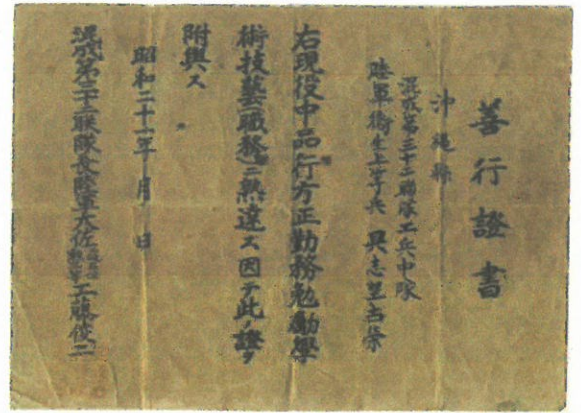 善行證書
沖縄縣
混成第三十二聯隊工兵中隊
陸軍衛生上等兵 具志堅古榮
右現役中品行方正勤務勉勵學
術技藝職務ニ熟達ス因テ此ノ證ヲ
附與ス
昭和二十一年 月 日
混成第三十二聯隊長陸軍大佐 工藤俊二